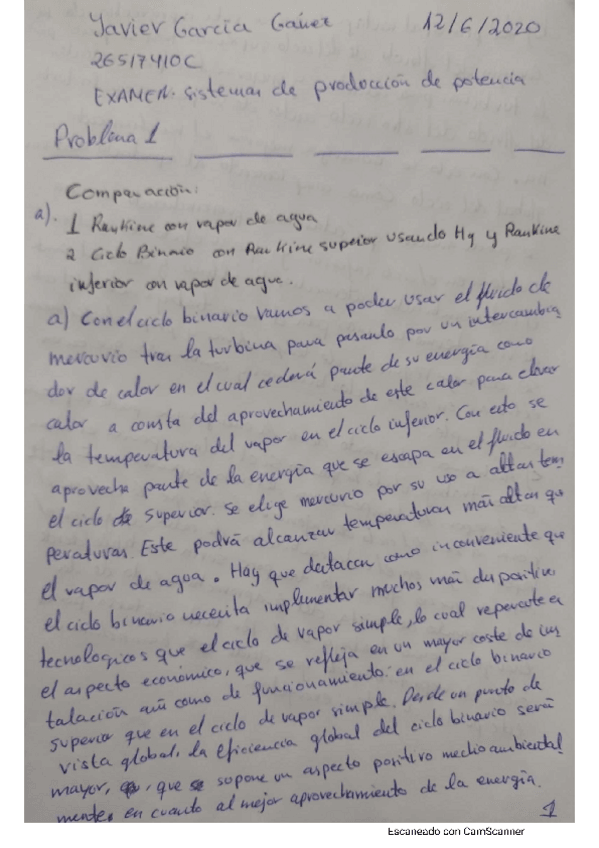 Javier García Gáñez 12/6/2020
26517410C
EXAMEN. Sistemas de producción de potencia
Problema 1
Comparación:
a). 1 Rankine con vapor de agua
2 Ciclo Binario con Rankine superior usando Hg y Rankine
inferior con vapor de agua.
a) Con el ciclo binario vamos a poder usar el fluido de
mercurio tras la turbina para pasarlo por un intercambia
dor de calor en el cual cederá parte de su energía como
calor a consta del aprovechamiento de este calor para elevar
la temperatura del vapor en el ciclo inferior. Con esto se
aprovecha parte de la energía que se escapa en el fluido en
el ciclo de superior. Se elige mercurio por su uso a altas tem
peraturas. Este podrá alcanzar temperaturas más altas que
el vapor de agua. Hay que destacar como inconveniente que
el ciclo binario necesita implementar muchos más dispositivos
tecnologicos que el ciclo de vapor simple, lo cual repercute en
el aspecto económico, que se refleja en un mayor coste de ins
talación así como de funcionamiento en el ciclo binario
superior que en el ciclo de vapor simple. Desde un punto de
vista global, la eficiencia global del ciclo binario será
mayor, que se supone un aspecto positivo medioambiental
mente, en cuanto al mejor aprovechamiento de la energía.
1
Escaneado con CamScanner